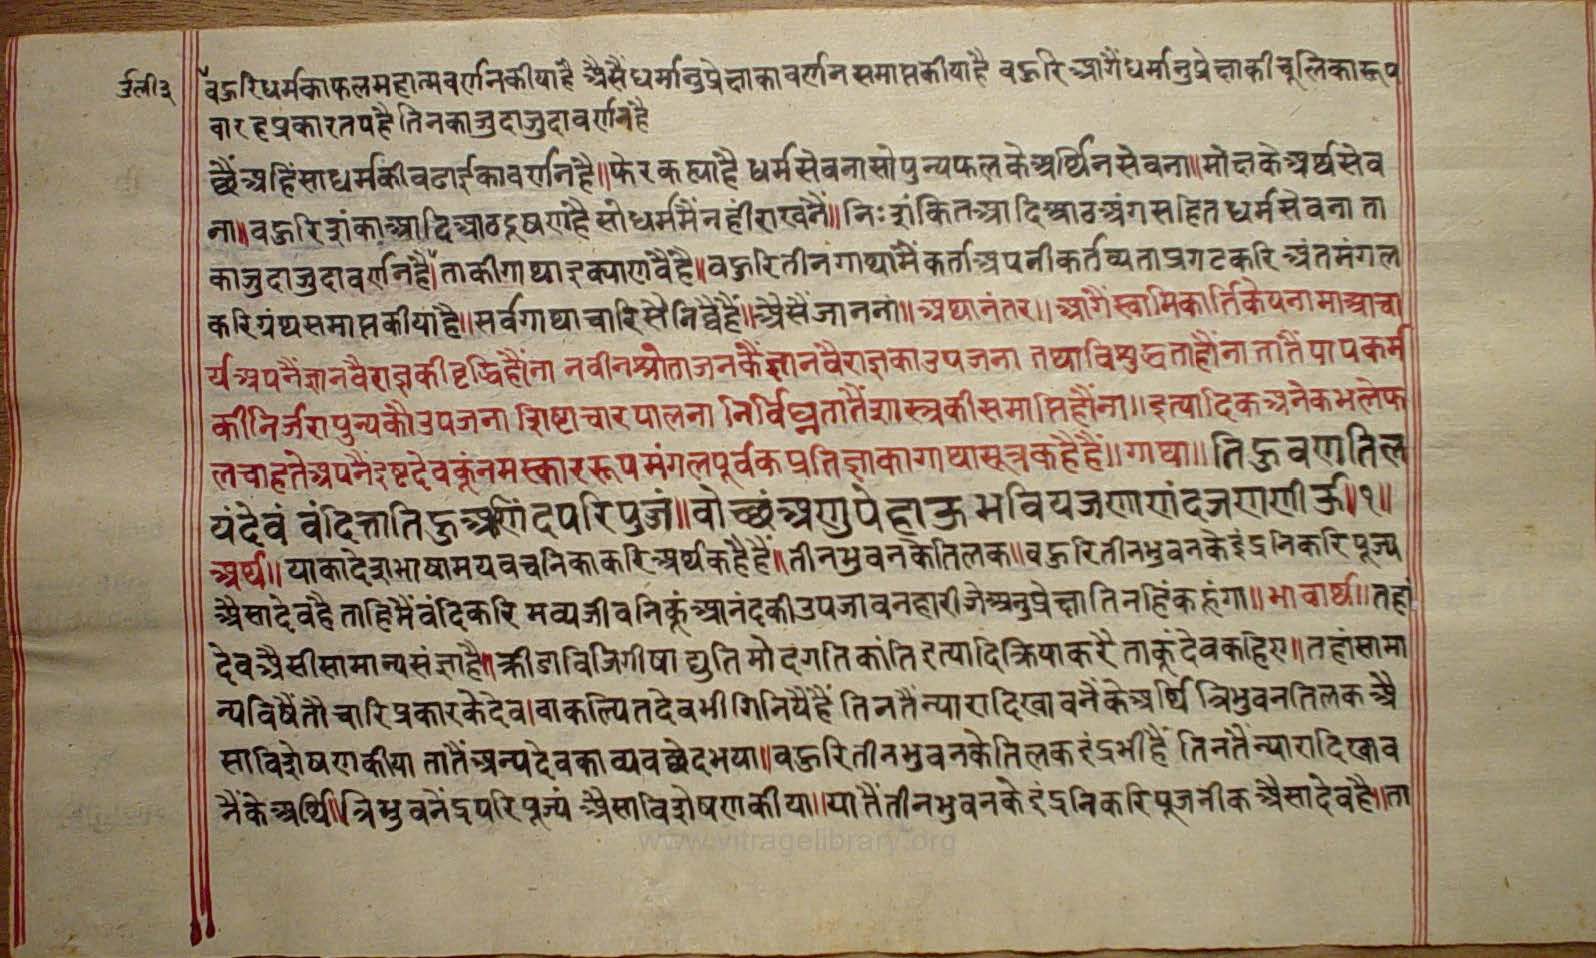 र्उली३
बऊरिधर्मकाफलमहात्मवर्णनकीयाहै अैसैंधर्मानुप्रेक्षाकावर्णनसमाप्तकीयाहै बऊरिआगैंधर्मानुप्रेक्षाकीचूलिकारूप
बारहप्रकारतपहैतिनकाजुदाजुदावर्णनहै
छैंअहिंसाधर्मकीबढाईकावर्णनहै॥फेरकह्याहै धर्मसेवनासोपुन्यफलकेअर्थिनसेवना॥मोक्षकेअर्थसेव
ना॥बऊरिशंकाआदिआठदूषणहैसोधर्ममैंनहींराखनैं॥निःशंकितआदिआठअंगसहितधर्मसेवनाता
काजुदाजुदावर्णनहै॥ताकीगाथाइक्याणवैंहै॥बऊरितीनगाथामैंकर्ताअपनीकर्तव्यताप्रगटकरिअंतमंगल
करिग्रंथसमाप्तकीयाहै॥सर्वगाथाचारिसैनिवैहैं॥अैसैंजाननां॥अथानंतर॥आगैंस्वामिकार्तिकेयनामाआचा
र्यअपनैंज्ञानवैराज्ञकीवृद्धिहौंना नवीनश्रोताजनकैंज्ञानवैराज्ञकाउपजना तथाविशुद्धताहौंना तातैंपापकर्म
कीनिर्जरापुन्यकौउपजना शिष्टाचारपालना निर्विघ्नतातैंशास्त्रकीसमाप्तिहौंना॥इत्यादिकअनेकभलेफ
लचाहतेअपनैंइष्टदेवकूंनमस्काररूपमंगलपूर्वकप्रतिज्ञाकागाथासूत्रकहैहैं॥गाथा॥तिऊवणतिल
यंदेवं वंदित्तातिऊअणिंदपरिपुजं॥वोच्छंअणुपेहाऊभवियजणाणंदजणणीऊ॥१॥
अर्थ॥याकादेशभाषामयवचनिकाकरिअर्थकहैहैं॥तीनभुवनकेतिलक॥बऊरितीनभुवनकेइंद्रनिकरिपूज्य
अैसादेवहैताहिमैंवंदिकरिभव्यजीवनिकूंआनंदकीउपजावनहारीजेअनुप्रेक्षातिनहिंकहूंगा॥भावार्थ॥तहां
देवअैसीसामान्यसंज्ञाहै॥क्रीडाविजिगीषाद्युतिमोदगतिकांतिइत्यादिक्रियाकरैताकूंदेवकहिए॥तहांसामा
न्यविषैंतौचारिप्रकारकेदेव।वाकल्पितदेवभीगिनियैंहैं तिनतैंन्यारादिखावनैंकेअर्थि त्रिभुवनतिलकअै
साविशेषणकीया तातैंअन्यदेवकाव्यवछेदभया॥बऊरितीनभुवनकेतिलकइंद्रभीहैं तिनतैंन्यारादिखाव
नैंकेअर्थि॥त्रिभुवनेंद्रपरिपूज्यं अैसाविशेषणकीया॥यातैंतीनभुवनकेइंद्रनिकरिपूजनीकअैसादेवहै॥ता
www.vitragelibrary.org